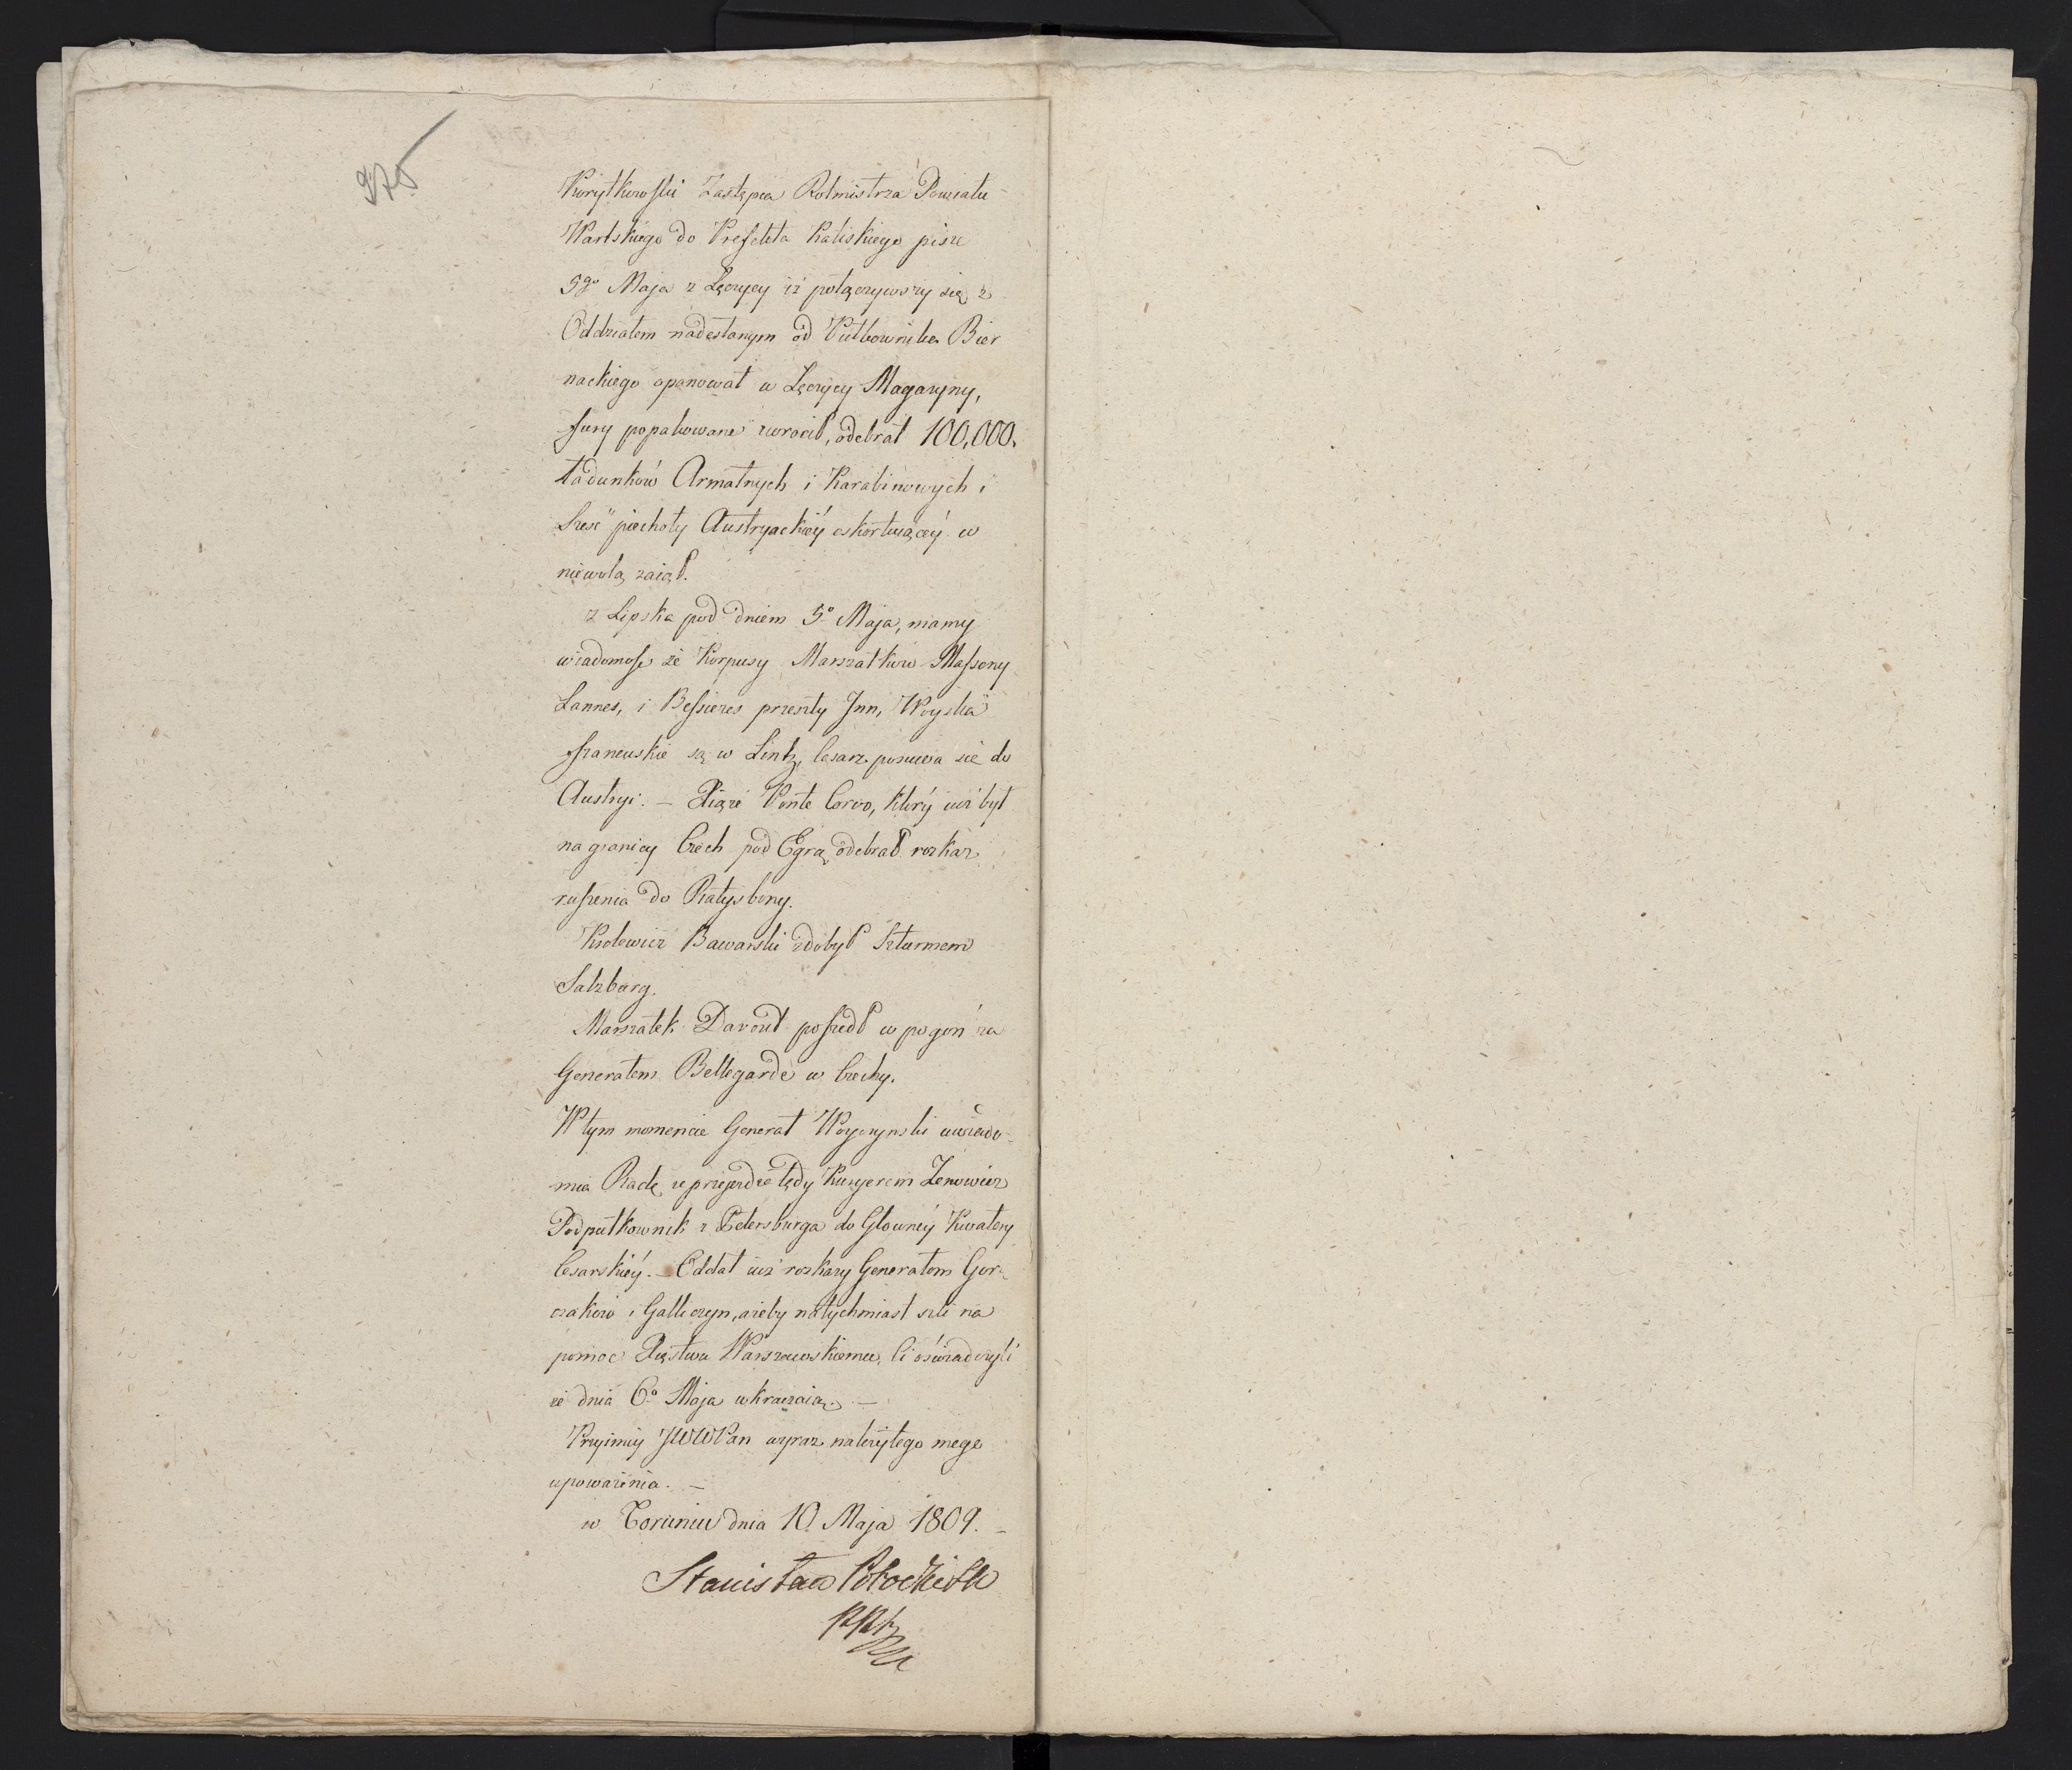 975
Korytkowski Zastępca Rotmistrza Powiatu
Wartskiego do Prefekta Kaliskiego pisze
5go Maja z Łęczycy iż połączywszy się z
Oddziałem nadesłanym od Pułkownika Bier
nackiego opanował w Łęczycy Magazyny,
fury popakowane zwrócił, odebrał 100,000.
Ładunków Armatnych i Karabinowych i
Sześć piechoty Austryackiéy eskortuiącéy w
niewolą zaiął.
z Lipska pod dniem 5o Maja, mamy
wiadomość że Korpusy Marszałków Massony
Lannes, i Bessieres przeszły Inn, Woyska
francuskie są w Lintz, Cesarz posuwa się do
Austryi. – Xiąże Ponte Corvo, który iuż był
na granicy Czech pod Egrą, odebrał rozkaz
ruszenia do Ratysbony.
Krolewicz Bawarski zdobył Szturmem
Salzburg.
Marszałek Davout poszedł w pogoń za
Generałem Bellegarde w Czechy.
W tym momencie Generał Woyczynski uwiado-
mia Radę o przejeździe tędy Kuryerem Zenowicz
Podpułkownik z Petersburga do Głownéy Kwatery
Cesarskiéy. – Oddał iuż rozkazy Generałom Gor-
czakow i Galliczyn, ażeby natychmiast szli na
pomoc Xięstwu Warszawskiemu, Ci oświadczyli
że dnia 6o Maja wkraczaią. –
Przyimiy JWWPan wyraz należytego mego
upoważenia. –
w Toruniu dnia 10 Maja 1809. –
Stanisław Potocki